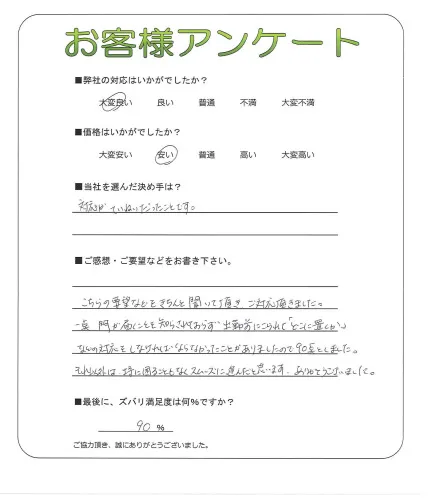 お客様アンケート
■弊社の対応はいかがでしたか？
大変良い 良い 普通 不満 大変不満
■価格はいかがでしたか？
大変安い 安い 普通 高い 大変高い
■当社を選んだ決め手は？
対応がていねいだったことです。
■ご感想・ご要望などをお書き下さい。
こちらの要望などをきちんと聞いて頂き ご対応頂きました。
一点 門が届くことを知らされておらず 出勤前にこられて「どこに置くか」
などの対応をしなければならなかったことがありましたので90点としました。
それ以外は 特に困ることもなくスムーズに進んだと思います。ありがとうございました。
■最後に、ズバリ満足度は何%ですか？
90 %
ご協力頂き、誠にありがとうございました。